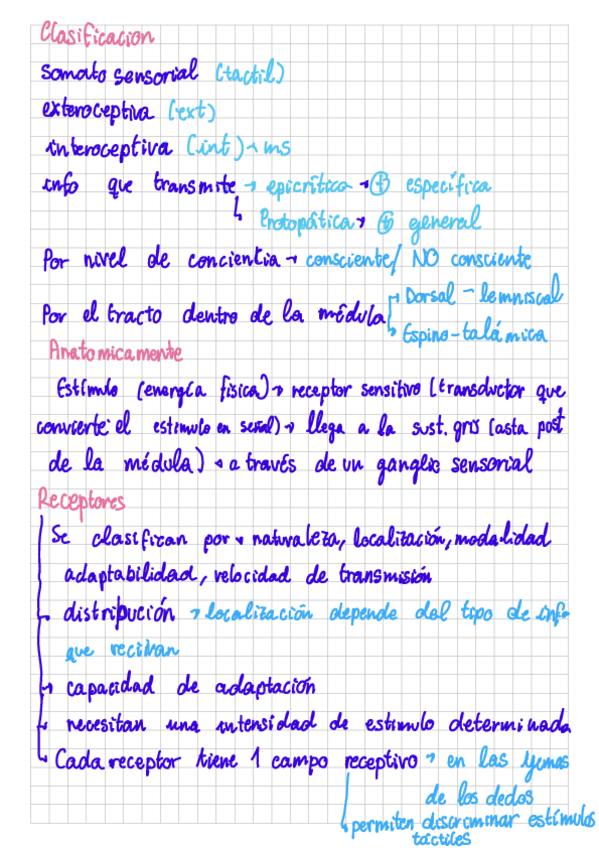 Clasificacion
somato sensorial (tactil)
exteroceptiva (ext)
interoceptiva (int) → ms
info que transmite → epicrítica → ⊕ específica
↳ Protopática → ⊕ general
Por nivel de concientia → consciente/ NO consciente
Por el tracto dentro de la médula → Dorsal - lemniscal
↳ Espino-talámica
Anatomicamente
Estímulo (energía física) → receptor sensitivo (transductor que
convierte el estimulo en señal) → llega a la sust. gris (asta post
de la médula) → a través de un ganglio sensorial
Receptores
Se clasifican por → naturaleza, localización, modalidad
adaptabilidad, velocidad de transmisión
→ distribución → localización depende del tipo de info
que reciban
→ capacidad de adaptación
→ necesitan una intensidad de estimulo determinada
↳ Cada receptor tiene 1 campo receptivo → en las yemas
de los dedos
↳ permiten discriminar estímulos
táctiles